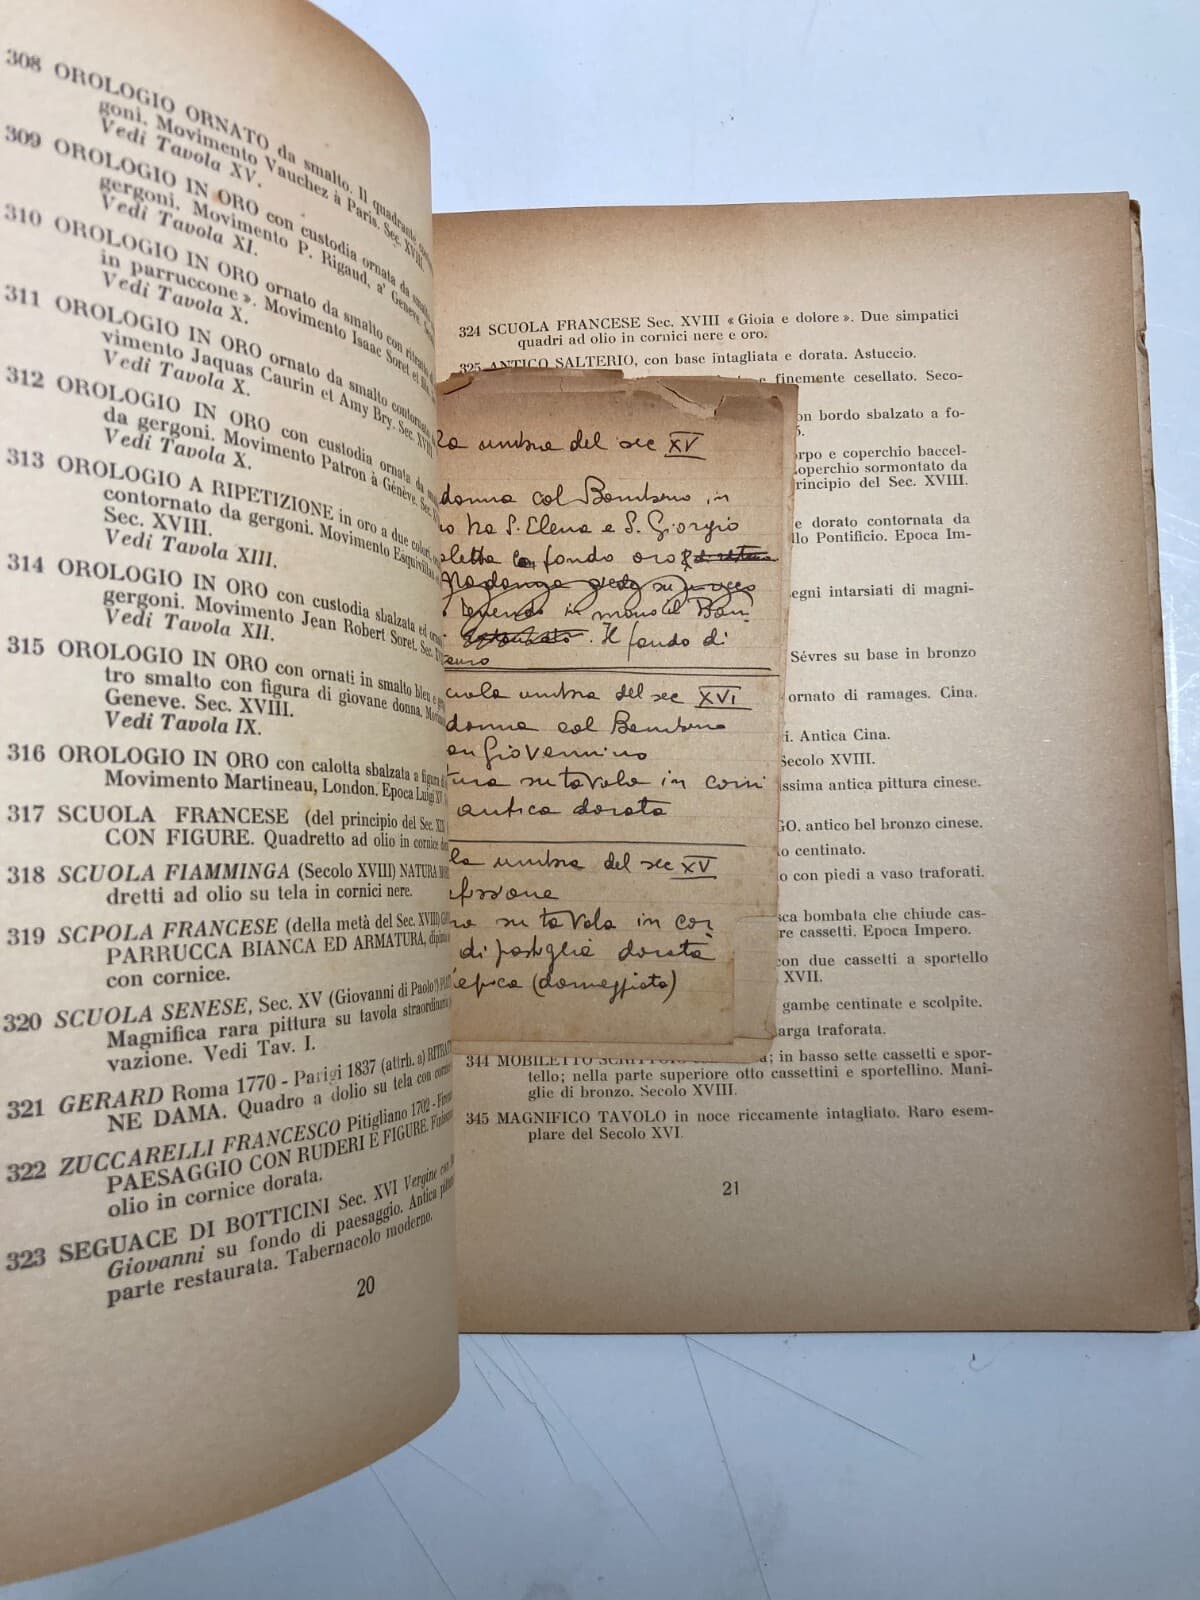 308 OROLOGIO ORNATO da smalto. Il quadrante
goni. Movimento Vauchez à Paris. Sec. XVIII.
Vedi Tavola XV.
309 OROLOGIO IN ORO con custodia ornata da
gergoni. Movimento P. Rigaud, a' Geneve.
Vedi Tavola XI.
310 OROLOGIO IN ORO ornato da smalto con ritratto
in parruccone ». Movimento Isaac Soret et
Vedi Tavola X.
311 OROLOGIO IN ORO ornato da smalto contornato
vimento Jaquas Caurin et Amy Bry. Sec. XVIII
Vedi Tavola X.
312 OROLOGIO IN ORO con custodia ornata da
da gergoni. Movimento Patron à Génève. Sec.
Vedi Tavola X.
313 OROLOGIO A RIPETIZIONE in oro a due colori,
contornato da gergoni. Movimento Esquivillon
Sec. XVIII.
Vedi Tavola XIII.
314 OROLOGIO IN ORO con custodia sbalzata ed
gergoni. Movimento Jean Robert Soret. Sec.
Vedi Tavola XII.
315 OROLOGIO IN ORO con ornati in smalto bleu e
tro smalto con figura di giovane donna.
Geneve. Sec. XVIII.
Vedi Tavola IX.
316 OROLOGIO IN ORO con calotta sbalzata a figura
Movimento Martineau, London. Epoca Luigi XV
317 SCUOLA FRANCESE (del principio del Sec. XIX
CON FIGURE. Quadretto ad olio in cornice
318 SCUOLA FIAMMINGA (Secolo XVIII) NATURA
dretti ad olio su tela in cornici nere.
319 SCPOLA FRANCESE (della metà del Sec. XVIII)
PARRUCCA BIANCA ED ARMATURA,
con cornice.
320 SCUOLA SENESE, Sec. XV (Giovanni di Paolo?)
Magnifica rara pittura su tavola
vazione. Vedi Tav. I.
321 GERARD Roma 1770 - Parigi 1837 (attrb. a)
NE DAMA. Quadro a dolio su tela con
322 ZUCCARELLI FRANCESCO Pitigliano 1702 -
PAESAGGIO CON RUDERI E FIGURE.
olio in cornice dorata.
323 SEGUACE DI BOTTICINI Sec. XVI Vergine
Giovanni su fondo di paesaggio. Antica
parte restaurata. Tabernacolo moderno.
20
324 SCUOLA FRANCESE Sec. XVIII « Gioia e dolore ». Due simpatici
quadri ad olio in cornici nere e oro.
325 ANTICO SALTERIO, con base intagliata e dorata. Astuccio.
e finemente cesellato. Seco-
on bordo sbalzato a fo-
orpo e coperchio baccel-
operchio sormontato da
rincipio del Sec. XVIII.
e dorato contornata da
llo Pontificio. Epoca Im-
egni intarsiati di magni-
Sévres su base in bronzo
ornato di ramages. Cina.
i. Antica Cina.
Secolo XVIII.
issima antica pittura cinese.
GO. antico bel bronzo cinese.
o centinato.
o con piedi a vaso traforati.
sca bombata che chiude cas-
re cassetti. Epoca Impero.
con due cassetti a sportello
XVII.
gambe centinate e scolpite.
arga traforata.
344 MOBILETTO SCRITTOIO a; in basso sette cassetti e spor-
tello; nella parte superiore otto cassettini e sportellino. Mani-
glie di bronzo. Secolo XVIII.
345 MAGNIFICO TAVOLO in noce riccamente intagliato. Raro esem-
plare del Secolo XVI.
21
la umbra del sec XV
donna col Bambino in
o tra S. Elena e S. Giorgio
oletta con fondo oro
Madonna
tenendo in mano il Bam-
. Il fondo di
auro
cuola umbra del sec XVI
donna col Bambino
an Giovannino
tura su tavola in corni
antica dorata
la umbra del sec XV
ifissione
su tavola in cor
di pastiglia dorata
'epoca (danneggiata)